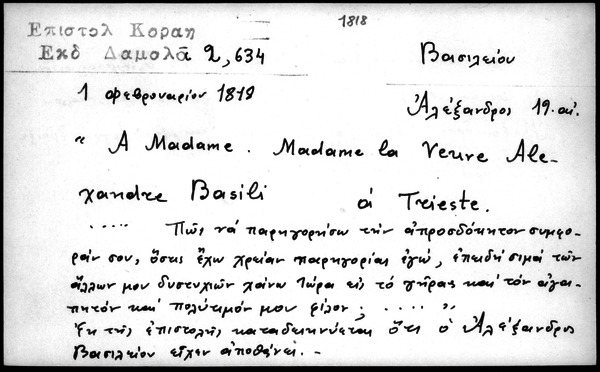 1818
Επιστολ Κοραη
Εκδ Δαμολᾶ 2,634
Βασιλείου
1 Φεβρουαρίου 1819
Ἀλέξανδρος 19. αἰ.
" A Madame. Madame la Veuve Ale-
xandre Basili á Trieste.
..... Πῶς νά παρηγορήσω τήν ἀπροσδόκητον συμφο-
ράν σου, ὅστις ἔχω χρείαν παρηγορίας ἐγώ, ἐπειδή σιμά τῶν
ἄλλων μου δυστυχιῶν χάνω τώρα εἰς τό γῆρας καί τόν ἀγα-
πητόν καί πολύτιμόν μου φίλον; ..... "
Ἐκ τῆς ἐπιστολῆς καταδεικνύεται ὅτι ὁ Ἀλέξανδρος
Βασιλείου εἶχεν ἀποθάνει. -